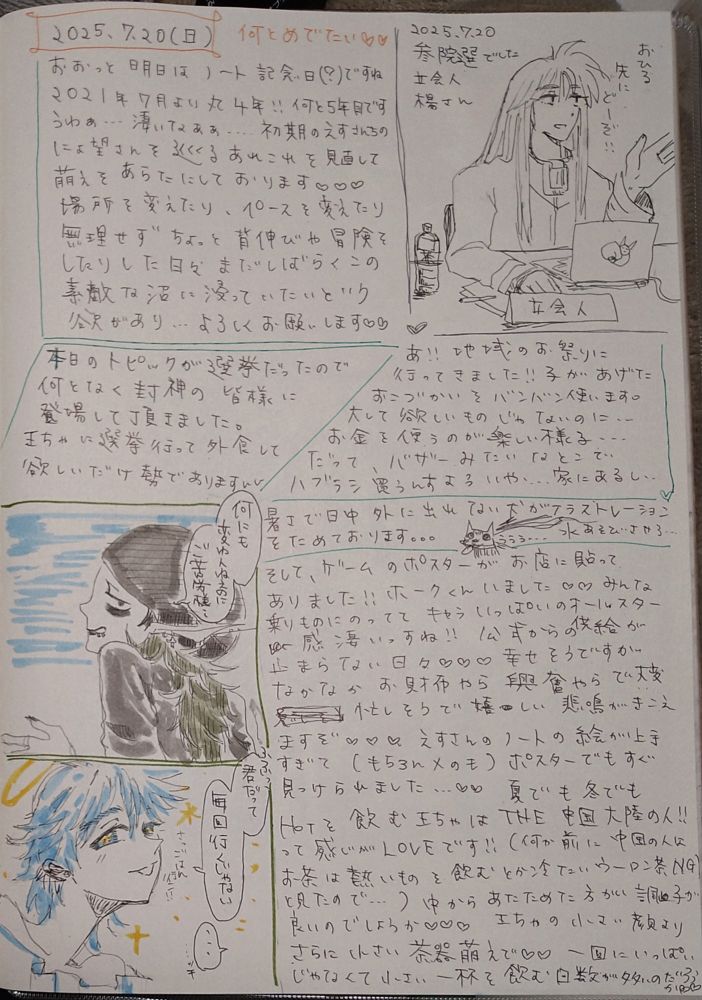 2025.7.20(日)
何とめでたい♡♡
おおっと 明日は ノート記念日(?)ですね
2021年7月より丸4年!! 何と5年目です
うわぁ…凄いなぁぁ….. 初期のえすさんちの
にょ望さんを めぐる あれこれを見直して
萌えを あらたにして おります♡♡♡
場所を変えたり、ペースを変えたり
無理せず ちょっと 背伸びや冒険を
したりした日々 まだしばらくこの
素敵な沼に浸っていたいという
欲があり… よろしくお願いします♡♡
2025.7.20
参院選でした
立会人
楊さん
おひる
先に
どーぞ!!
立会人
本日のトピックが選挙だったので
何となく封神の皆様に
登場して頂きました。
王ちゃに選挙行って外食して
欲しいだけ勢であります
あ!! 地域のお祭りに
行ってきました!! 子があげた
おこづかいをバンバン使います。
大して欲しいものじゃないのに…
お金を使うのが楽しい様子…
だって、バザーみたいなとこで
ハブラシ買うんすよ いや… 家にあるし..
暑さで日中外に出れない犬がフラストレーション
をためております。。。
ううう…
水あそびさせる…
そして、ゲームのポスターがお店に貼って
ありました!! ホークくんいました♡♡ みんな
乗りものにのってて キャラいっぱいのオールスター
感 凄いっすね!! 公式からの供給が
止まらない日々♡♡♡ 幸せそうですが
なかなか お財布やら 興奮やらで大変
忙しそうで嬉しい 悲鳴がきこえ
ますぞ♡♡♡ えすさんのノートの絵が上手
すぎて (もちろんメのも) ポスターでもすぐ
見つけられました…♡♡ 夏でも冬でも
Hotを飲む王ちゃは THE 中国大陸の人!!
って感じがLOVEです!! (何か前に中国の人は
お茶は熱いものを飲むとか冷たいウーロン茶NG
と見たので…) 中からあたためた方がい 調子が
良いのでしょうか♡♡♡ 王ちゃの小さい顔より
さらに小さい 茶器萌えで♡♡ 一回にいっぱい
じゃなくて小さい一杯を飲む回数が多いのだろう
何にも
変わんねぇのに
ご苦労様…
ふふっ…
君だって
毎回行くじゃない
さ、ごはん
行こ!!
…